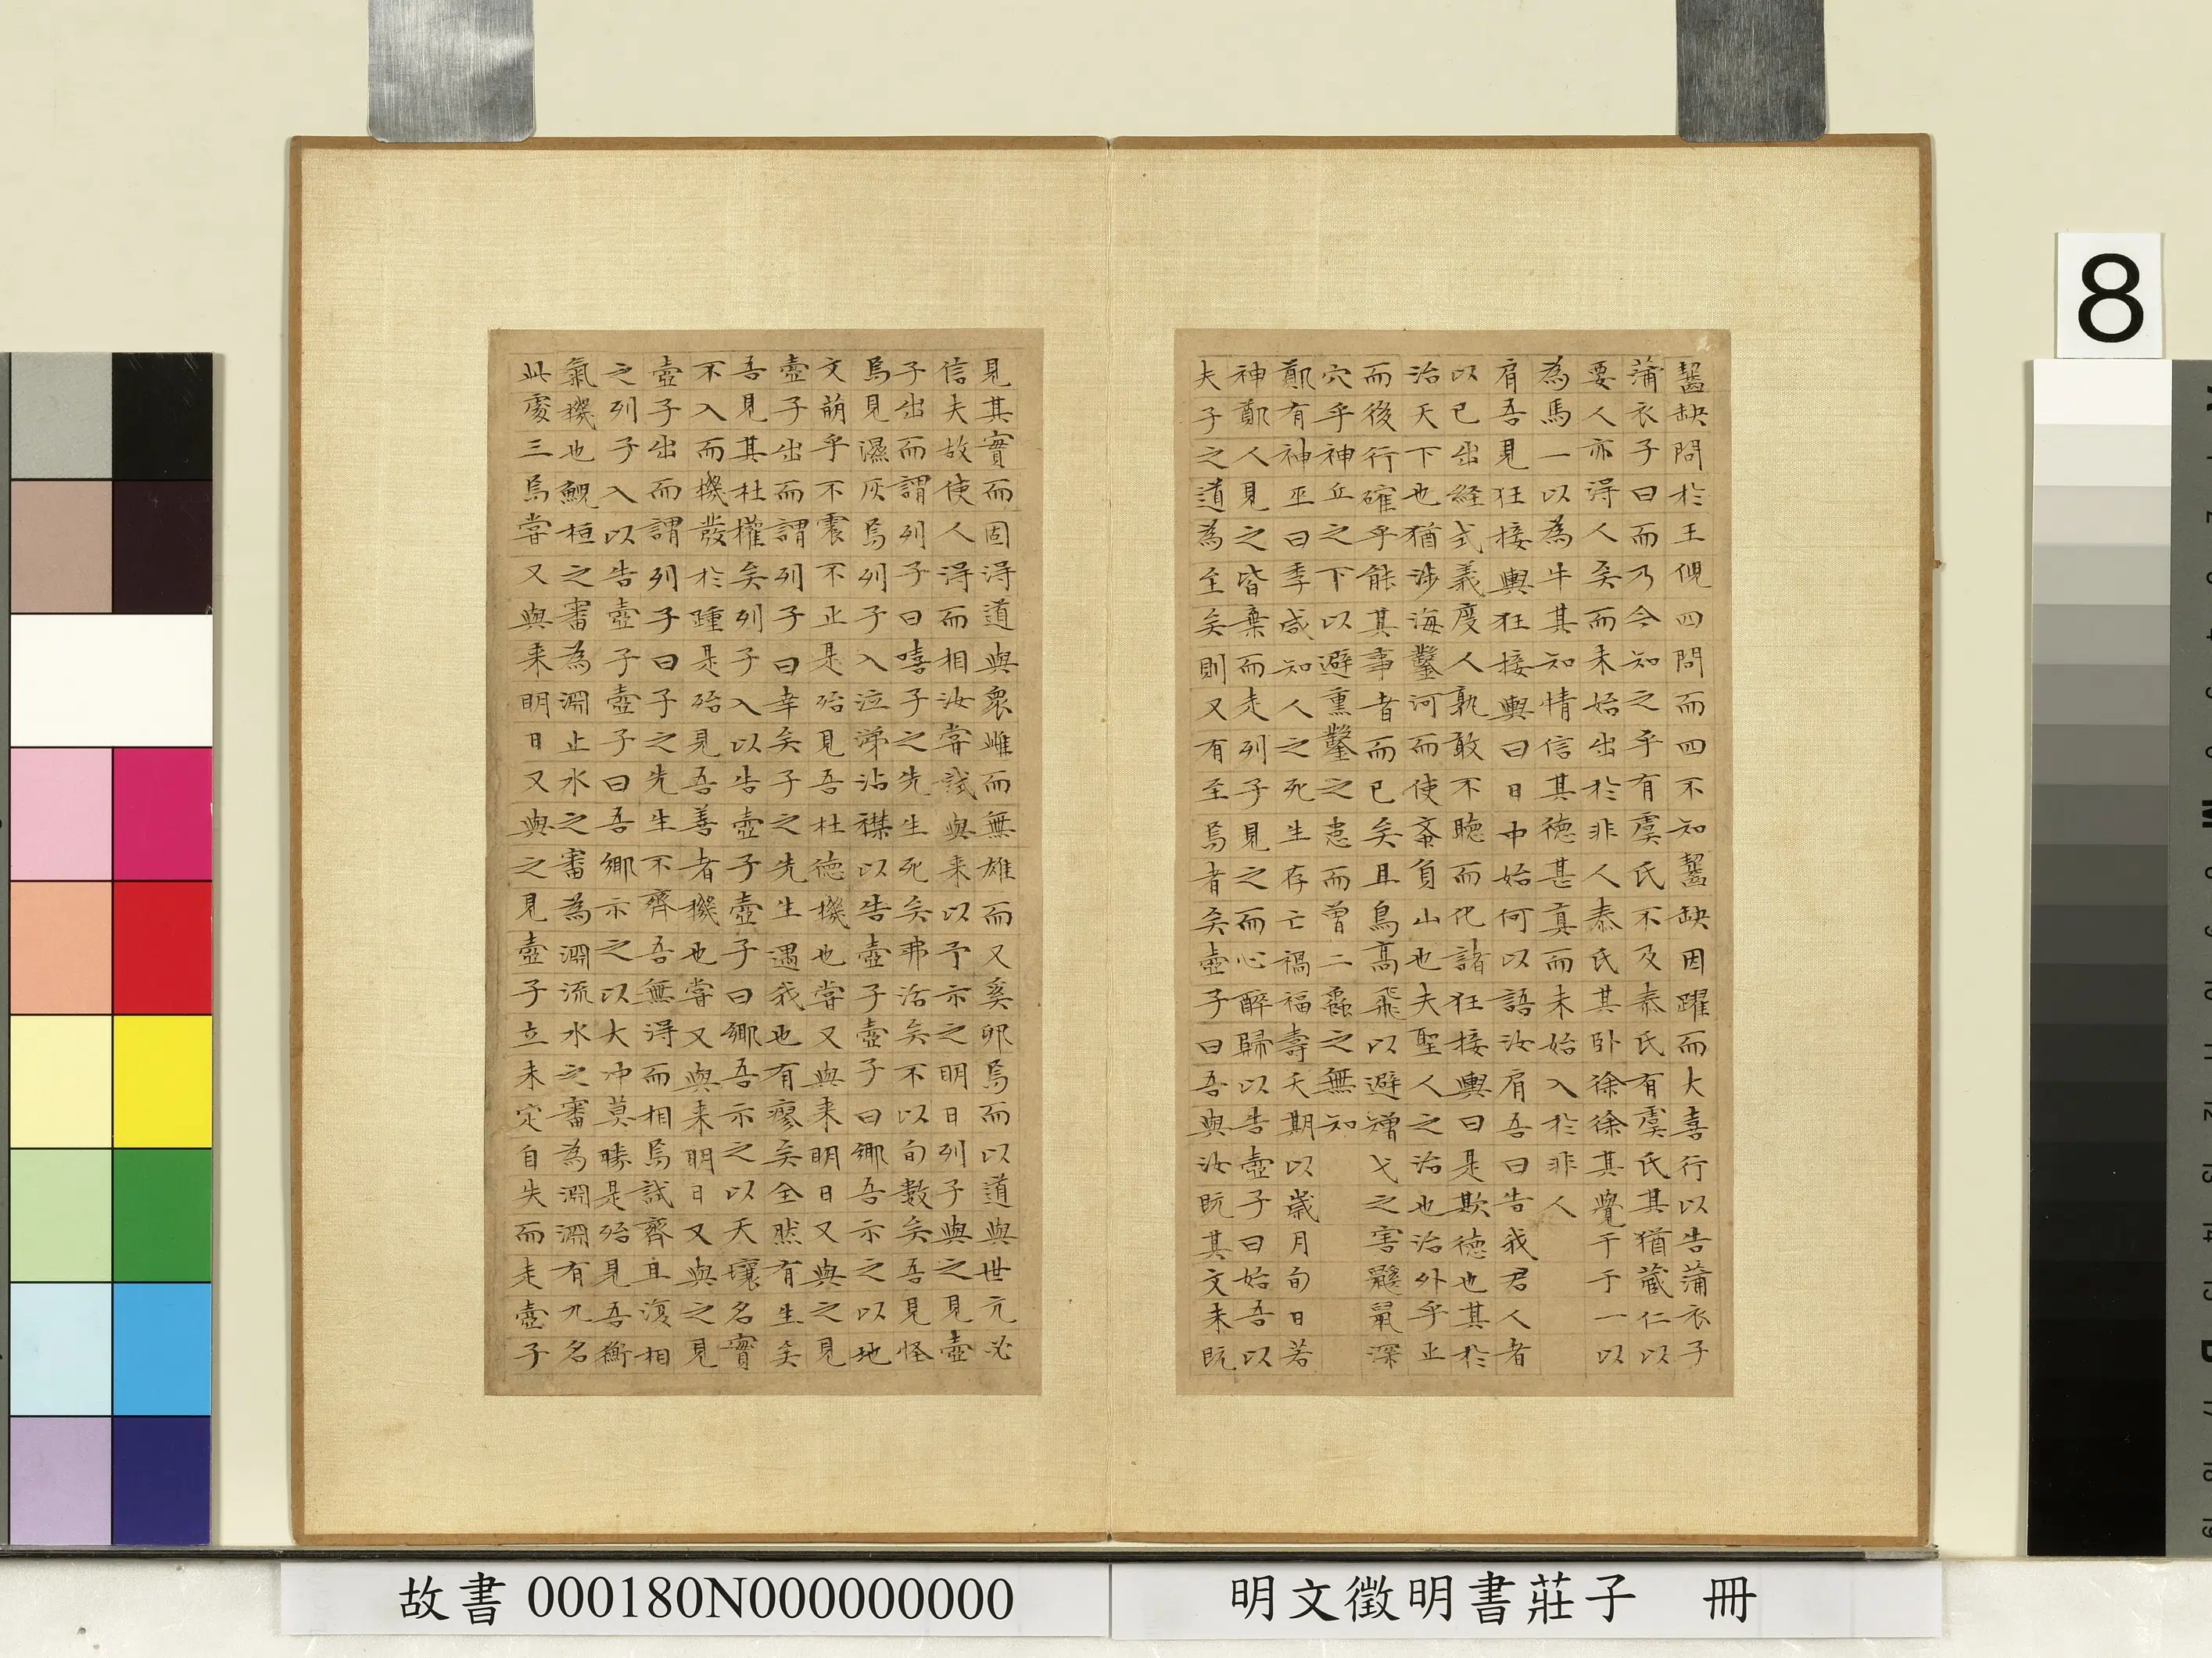 齧缺問於王倪四問而四不知齧缺因躍而大喜行以告蒲衣子
蒲衣子曰而乃今知之乎有虞氏不及泰氏有虞氏其猶藏仁以
要人亦得人矣而未始出於非人泰氏其卧徐徐其覺于于一以
為馬一以為牛其知情信其德甚真而未始入於非人
肩吾見狂接輿狂接輿曰日中始何以語汝肩吾曰告我君人者
以己出經式義度人孰敢不聽而化諸狂接輿曰是欺德也其於
治天下也猶涉海鑿河而使蚉負山也夫聖人之治也治外乎正
而後行確乎能其事者而已矣且鳥高飛以避矰弋之害鼷鼠深
穴乎神丘之下以避熏鑿之患而曾二蟲之無知
鄭有神巫曰季咸知人之死生存亡禍福壽夭期以歲月旬日若
神鄭人見之皆棄而走列子見之而心醉歸以告壺子曰始吾以
夫子之道為至矣則又有至焉者矣壺子曰吾與汝既其文未既
見其實而固得道與衆雌而無雄而又奚卵焉而以道與世亢必
信夫故使人得而相汝嘗試與来以予示之明日列子與之見壺
子出而謂列子曰嘻子之先生死矣弗活矣不以旬數矣吾見怪
焉見濕灰焉列子入泣涕沾襟以告壺子壺子曰鄉吾示之以地
文萌乎不震不止是殆見吾杜德機也嘗又與来明日又與之見
壺子出而謂列子曰幸矣子之先生遇我也有瘳矣全然有生矣
吾見其杜權矣列子入以告壺子壺子曰鄉吾示之以天壤名實
不入而機發於踵是殆見吾善者機也嘗又與来明日又與之見
壺子出而謂列子曰子之先生不齊吾無得而相焉試齊且復相
之列子入以告壺子壺子曰吾鄉示之以大冲莫勝是殆見吾衡
氣機也鯢桓之審為淵止水之審為淵流水之審為淵淵有九名
此處三焉嘗又與来明日又與之見壺子立未定自失而走壺子
8
故書000180N000000000
明文徵明書莊子 冊